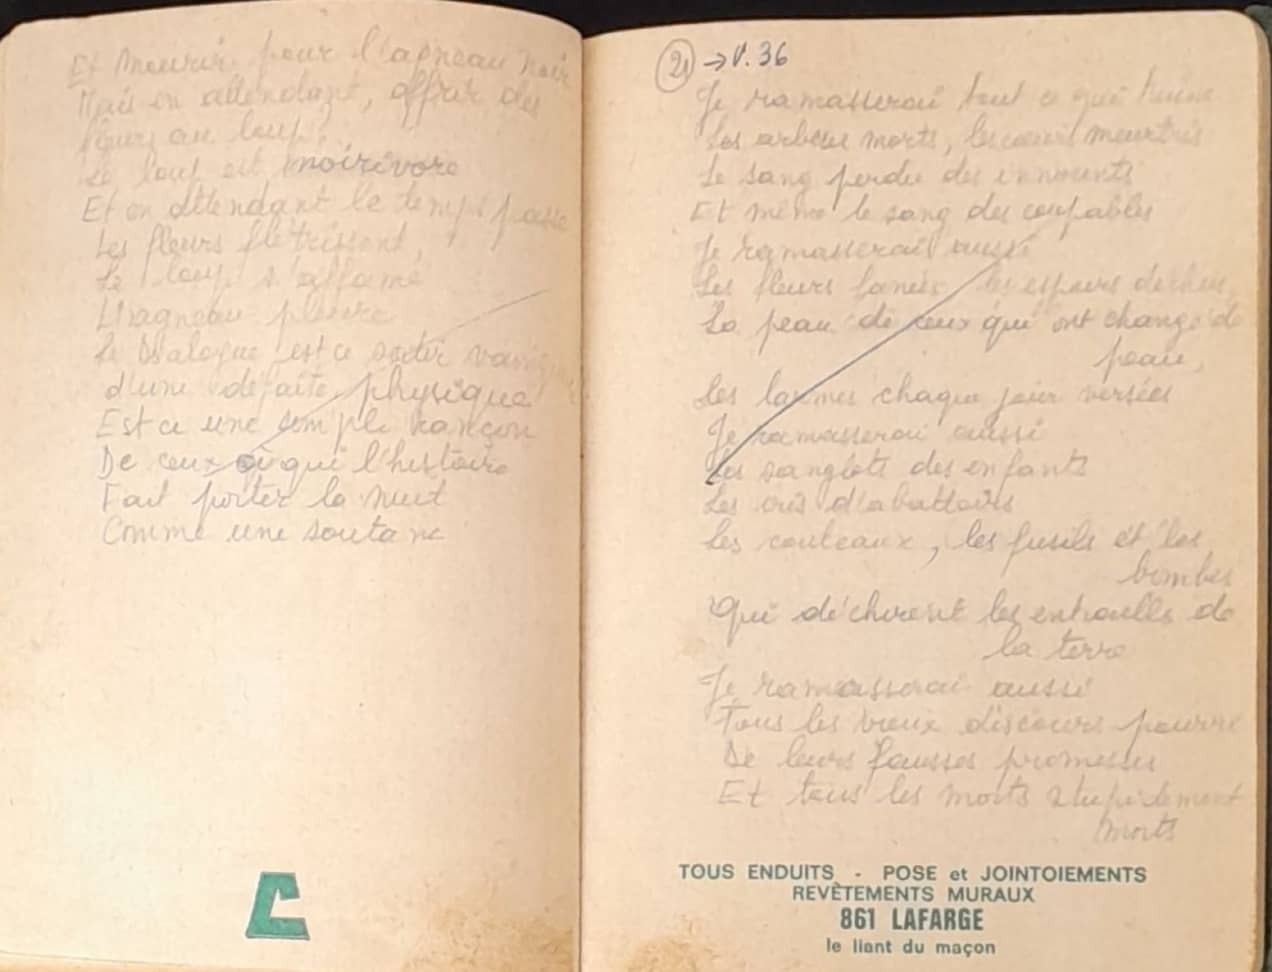 Et mourir pour l'agneau noir
Mais en attendant, offrir des
fleurs au loup,
Le loup est noirivore
Et en attendant le temps passe
Les fleurs flétrissent,
Le loup s'affame
L'agneau pleure
Le dialogue est ce
d'une défaite physique
Est ce une simple rançon
De ceux à qui l'histoire
Fait porter la nuit
Comme une soutane
C
21 → V. 36
Je ramasserai tout ce qui traine
Les arbres morts, les cœurs meurtris
Le sang perdu des innocents
Et même le sang des coupables
Je ramasserai aussi
Les fleurs fanées, les espoirs déchus,
La peau de ceux qui ont changé de
peau,
Les larmes chaque jour versées
Je ramasserai aussi
Les sanglots des enfants
Les cris d'abattoirs
Les couteaux, les fusils et les
bombes
Qui déchirent les entrailles de
la terre
Je ramasserai aussi
Tous les vieux discours pourris
De leurs fausses promesses
Et tous les morts stupidement
morts
TOUS ENDUITS - POSE et JOINTOIEMENTS
REVÊTEMENTS MURAUX
861 LAFARGE
le liant du maçon